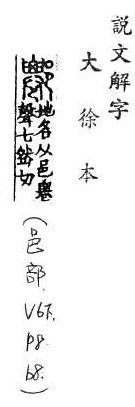 說文解字
大徐本
地名从邑䙴
聲七然切
(邑部. V6下. P8. b8.)